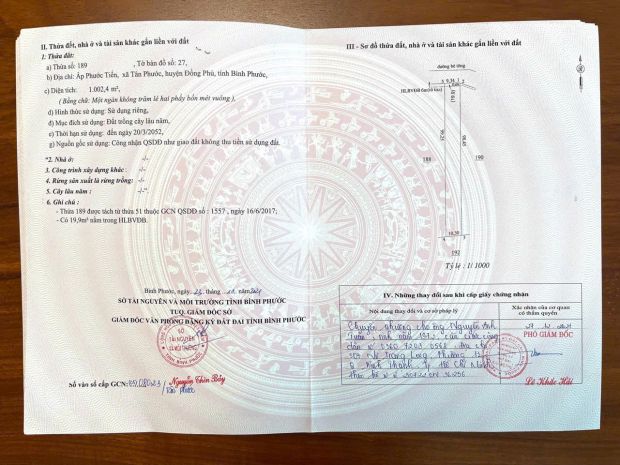 II. Thửa đất, nhà ở và tài sản khác gắn liền với đất
1. Thửa đất:
a) Thửa số: 189 , Tờ bản đồ số: 27,
b) Địa chỉ: Ấp Phước Tiến, xã Tân Phước, huyện Đồng Phú, tỉnh Bình Phước,
c) Diện tích: 1.002,4 m²,
( Bằng chữ: Một ngàn không trăm lẻ hai phẩy bốn mét vuông ),
d) Hình thức sử dụng: Sử dụng riêng,
đ) Mục đích sử dụng: Đất trồng cây lâu năm,
e) Thời hạn sử dụng: đến ngày 20/3/2052,
g) Nguồn gốc sử dụng: Công nhận QSDĐ như giao đất không thu tiền sử dụng đất.
*2. Nhà ở: -/-
3. Công trình xây dựng khác: -/-
4. Rừng sản xuất là rừng trồng: -/-
5. Cây lâu năm: -/-
6. Ghi chú:
- Thửa 189 được tách từ thửa 51 thuộc GCN QSDĐ số : 1557, ngày 16/6/2017;
- Có 19,9m² nằm trong HLBVĐB.
Bình Phước, ngày tháng năm
SỞ TÀI NGUYÊN VÀ MÔI TRƯỜNG TỈNH BÌNH PHƯỚC
TUQ. GIÁM ĐỐC SỞ
GIÁM ĐỐC VĂN PHÒNG ĐĂNG KÝ ĐẤT ĐAI TỈNH BÌNH PHƯỚC
SỞ
TÀI NGUYÊN
VÀ MÔI TRƯỜNG
Số vào sổ cấp GCN:
Tân Phước
III - Sơ đồ thửa đất, nhà ở và tài sản khác gắn liền với đất
đường bê tông
HLBVĐB
99.25
98.45
188
190
10.30
192
Tỷ lệ : 1/ 1000
IV. Những thay đổi sau khi cấp giấy chứng nhận
Nội dung thay đổi và cơ sở pháp lý
Xác nhận của cơ quan có thẩm quyền
Chuyển nhượng cho ông Nguyễn Anh
PHÓ GIÁM ĐỐC
Lê Khắc Hải